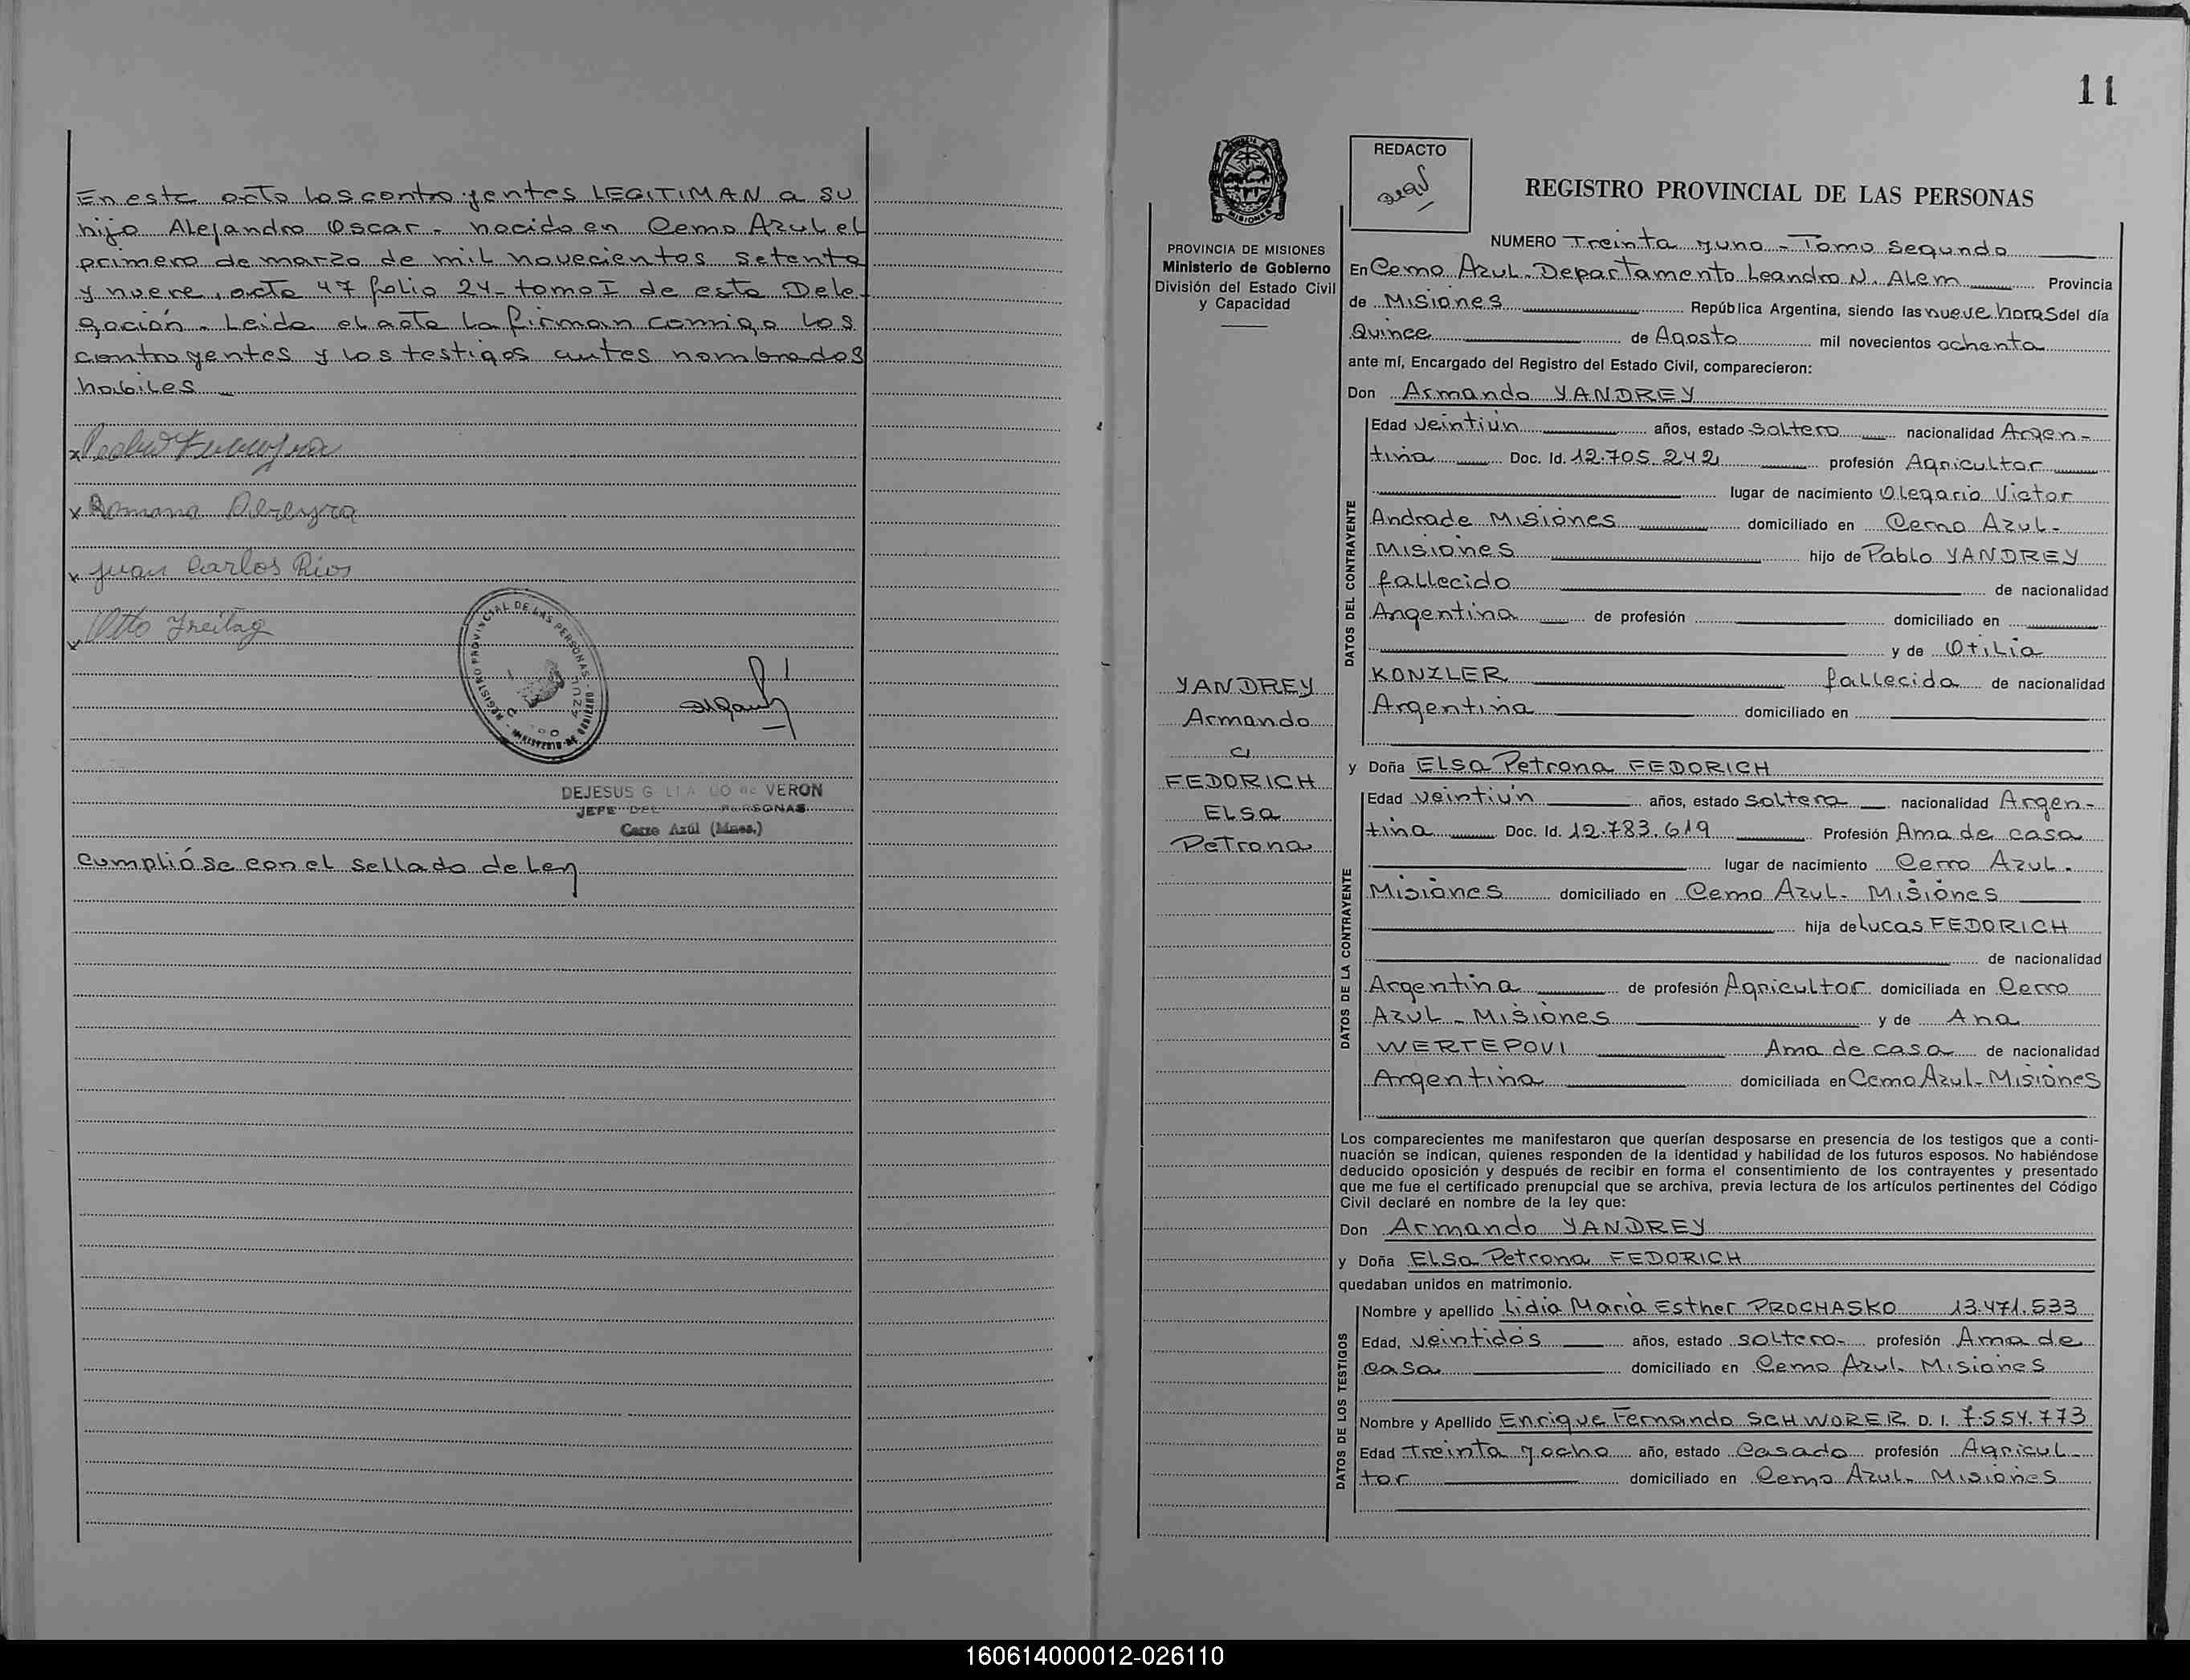 En este acto los contrayentes LEGITIMAN a su
hijo Alejandro Oscar - nacido en Cerro Azul el
primero de marzo de mil novecientos setenta
y nueve, acta 47 folio 24 - tomo I de esta Dele
gación - Leida el acta la firman conmigo los
contrayentes y los testigos antes nombrados
habiles
x Pedro
x Romana Pereyra
x Juan Carlos Rios
x Otto Freitag
REGISTRO PROVINCIAL DE LAS PERSONAS
AZUL
DEJESUS G de VERON
JEFE DEL PERSONAS
Cerro Azúl (Mnes.)
Cumplióse con el sellado de Ley
11
REDACTO
REGISTRO PROVINCIAL DE LAS PERSONAS
MISIONES
PROVINCIA DE MISIONES
Ministerio de Gobierno
División del Estado Civil
y Capacidad
YANDREY
Armando
c/
FEDORICH
ELSA
Petrona
NUMERO Treinta y uno - Tomo Segundo
En Cerro Azul - Departamento Leandro N. Alem Provincia
de Misiones República Argentina, siendo las nueve horas del día
Quince de Agosto mil novecientos ochenta
ante mí, Encargado del Registro del Estado Civil, comparecieron:
Don Armando YANDREY
DATOS DEL CONTRAYENTE
Edad veintiún años, estado soltero nacionalidad Argen-
tina Doc. Id. 12.705.242 profesión Agricultor
lugar de nacimiento Olegario Victor
Andrade Misiones domiciliado en Cerro Azul-
Misiones hijo de Pablo YANDREY
fallecido de nacionalidad
Argentina de profesión domiciliado en
y de Otilia
KONZLER fallecida de nacionalidad
Argentina domiciliado en
y Doña Elsa Petrona FEDORICH
DATOS DE LA CONTRAYENTE
Edad veintiún años, estado soltera nacionalidad Argen-
tina Doc. Id. 12.783.619 Profesión Ama de casa
lugar de nacimiento Cerro Azul -
Misiones domiciliado en Cerro Azul- Misiones
hija de Lucas FEDORICH
de nacionalidad
Argentina de profesión Agricultor domiciliada en Cerro
Azul - Misiones y de Ana
WERTEPOVI Ama de casa de nacionalidad
Argentina domiciliada en Cerro Azul- Misiones
Los comparecientes me manifestaron que querían desposarse en presencia de los testigos que a conti-
nuación se indican, quienes responden de la identidad y habilidad de los futuros esposos. No habiéndose
deducido oposición y después de recibir en forma el consentimiento de los contrayentes y presentado
que me fue el certificado prenupcial que se archiva, previa lectura de los artículos pertinentes del Código
Civil declaré en nombre de la ley que:
Don Armando YANDREY
y Doña Elsa Petrona FEDORICH
quedaban unidos en matrimonio.
DATOS DE LOS TESTIGOS
Nombre y apellido Lidia María Esther PROCHASKO 13.471.533
Edad, veintidós años, estado soltera- profesión Ama de
casa domiciliado en Cerro Azul- Misiones
Nombre y Apellido Enrique Fernando SCHWORER D. I. 7.554.773
Edad Treinta y ocho año, estado Casado profesión Agricul-
tor domiciliado en Cerro Azul- Misiones
160614000012-026110